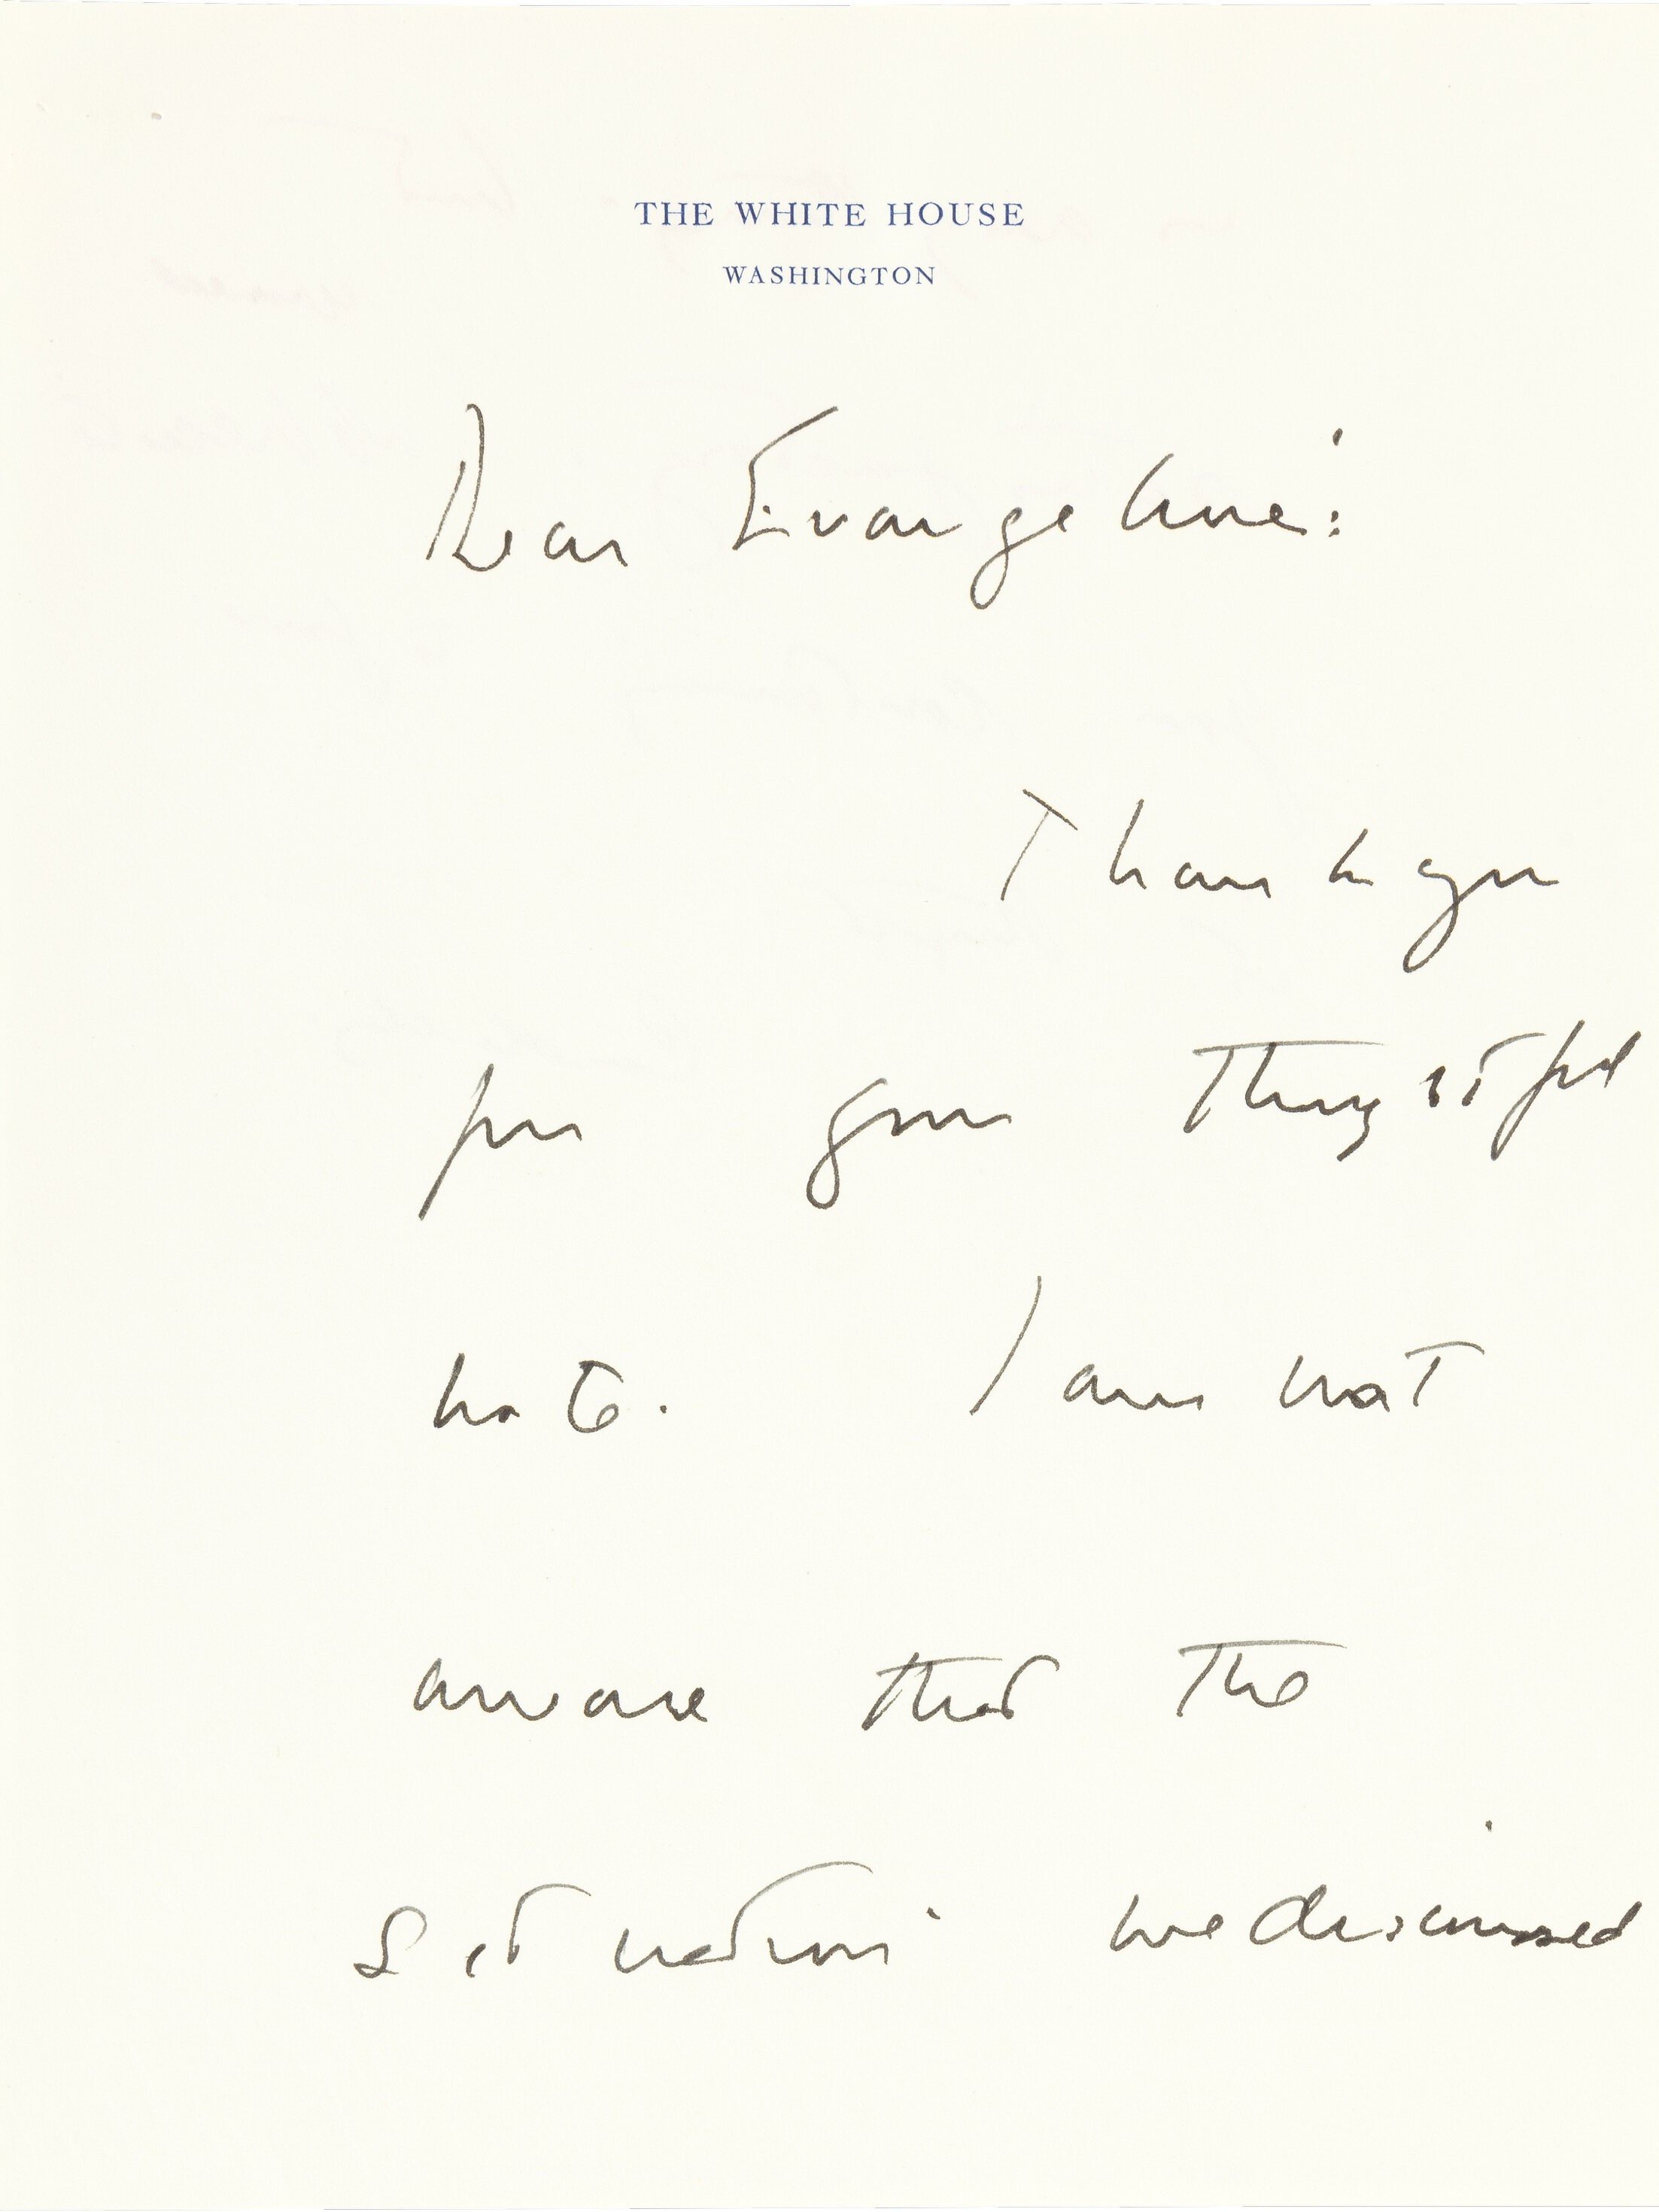 THE WHITE HOUSE
WASHINGTON
Dear Evangeline:
Thank you
for your thoughtful
note. I am not
aware that the
situation we discussed